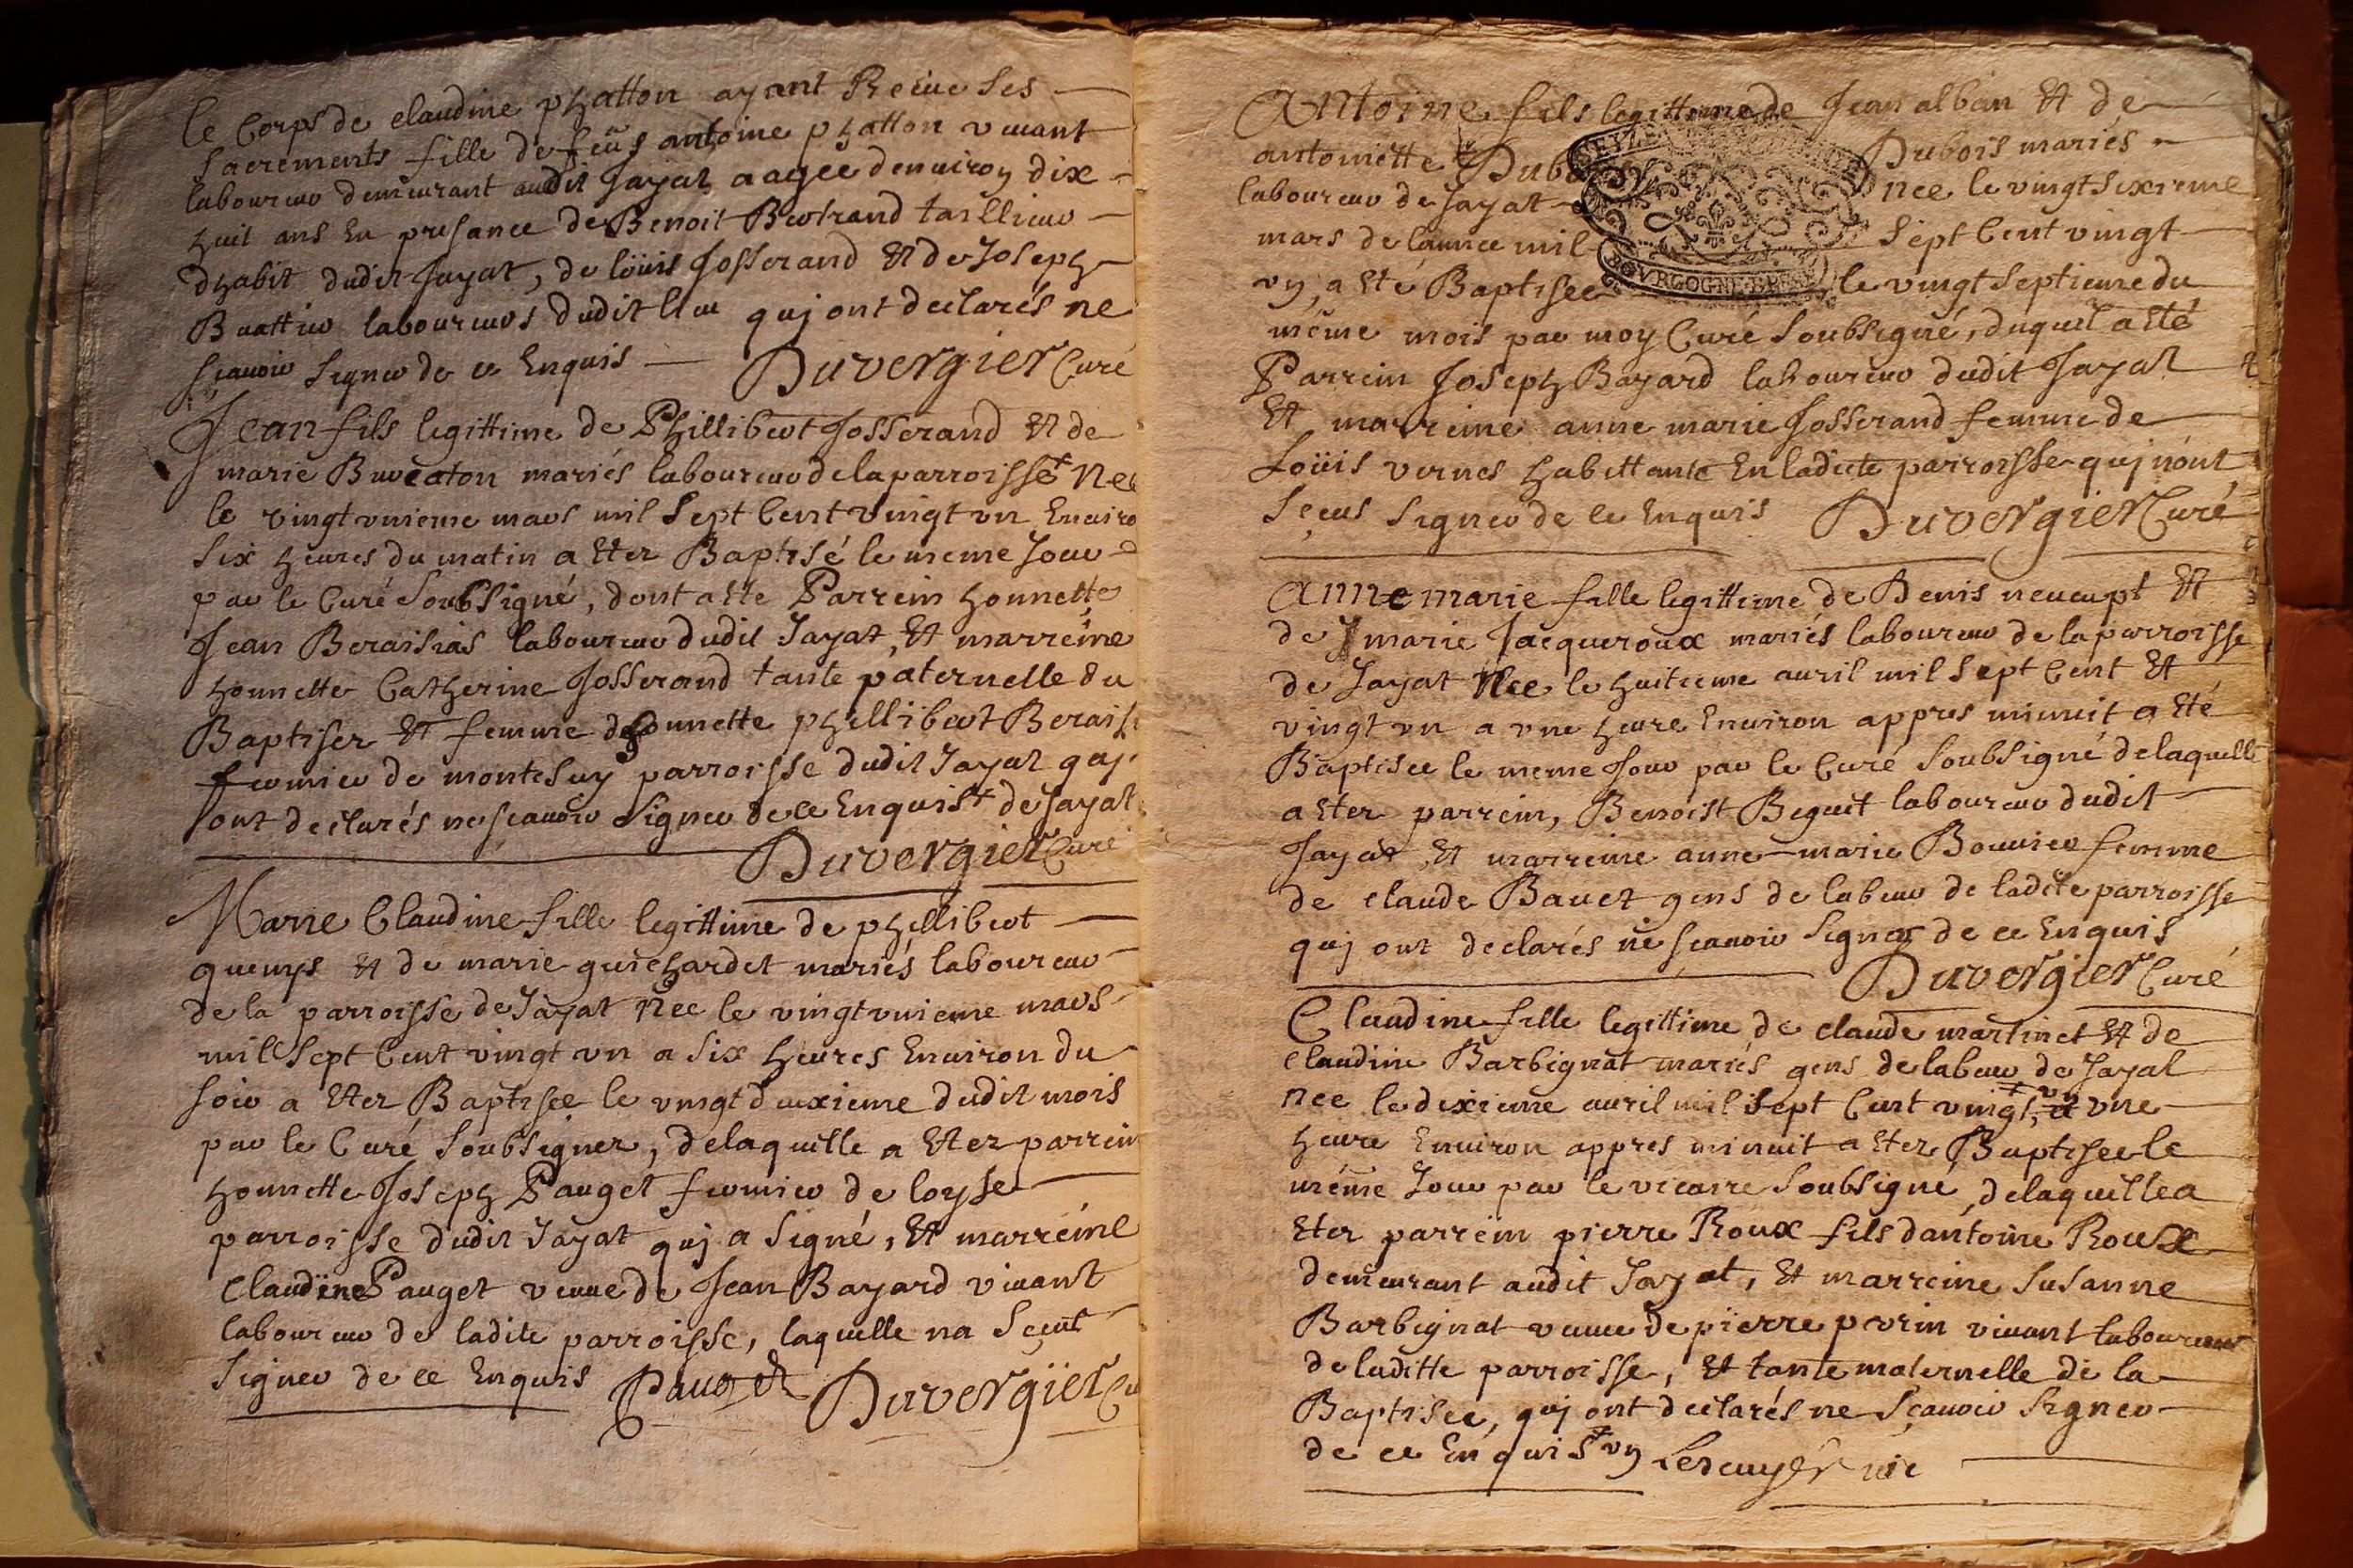 le Corps de claudine phatton ayant Recue Ses
Sacrements fille de feüs antoine phatton viuant
laboureur demeurant audit Jayat aagée denuiron dix
huit ans En presance de Benoit Bertrand tasllieur
dhabit dudit Jayat, de loüis Josserand Et de Joseph
laboureurs dudit lieu quj ont declarés ne
scauoir Signer de ce Enquis Duvergier Curé
Jean fils legittime de Phillibert Josserand Et de
marie mariés laboureur de la parroisse + Née
le vingt vnieme mars mil Sept Cent vingt vn Enuiro
Six heures du matin a Eter Baptisé le meme Jour
par le Curé SoubSigné, dont a Ete Parrein honnette
Jean Beraisias laboureur dudit Jayat, Et marreine
honnette Catherine Josserand tante paternelle du
Baptiser Et femme de honnette phillibert Berais
fermier de montesuy parroisse dudit Jayat quj
ont declarés ne scauoir Signer de ce Enquis + de Jayat
Duvergier Curé
Marie Claudine fille legittime de phillibert
quemys Et de marie guichardet mariés laboureur
de la parroisse de Jayat Née le vingt vnieme mars
mil Sept Cent vingt vn a Six heures Enuiron du
soir a Eter Baptisée le vingt deuxieme dudit mois
par le Curé SoubSigner, de laquelle a Eter parrein
honnette Joseph Pauget fermier de loyse
parroisse dudit Jayat quj a Signé, Et marreine
Claudine Pauget veuue de Jean Bayard viuant
laboureur de ladite parroisse, laquelle na Sçeut
Signer de ce Enquis Pauget Duvergier Cu
Antoine fils legittime de Jean alban Et de
antoinette Dubois Dubois mariés
laboureur de Jayat née le vingt Sixieme
mars de lannee mil Sept Cent vingt
vn, a Eté Baptisée le vingt Septieme du
BOVRGOGNE
même mois par moy Curé SoubSigné, duquel a Eté
Parrein Joseph Bayard laboureur dudit Jayat
Et marreine anne marie Josserand femme de
Loüis vernes habittante En ladicte parroisse quj nont
Sçeus Signer de ce Enquis Duvergier Curé
Anne marie fille legittime de Denis neueupt Et
de marie Jacqueroux mariés laboureur de la parroisse
de Jayat Née le huitieme auril mil Sept Cent Et
vingt vn a vne heure Enuiron appres minuit a Eté
Baptisée le meme Jour par le Curé SoubSigné de laquelle
a Eter parrein, Benoist Beguet laboureur dudit
Jayat, Et marreine anne-marie Bouuier femme
de claude Bauet gens de labeur de ladite parroisse
quj ont declarés ne scauoir Signer de ce Enquis
Duvergier Curé
Claudine fille legittime de claude martinet Et de
claudine Barbignat mariés gens de labeur de Jayat
née le dixieme auril mil Sept Cent vingt, + vn a vne
heure Enuiron appres minuit a Eter Baptisée le
même Jour par le vicaire SoubSigné, de laquelle a
Eter parrein pierre Roux fils dantoine Roux
demeurant audit Jayat, Et marreine Susanne
Barbignat veuue de pierre perrin viuant laboureur
de laditte parroisse, Et tante maternelle de la
Baptisée, quj ont declarés ne Sçauoir Signer
de ce Enquis + vn vic